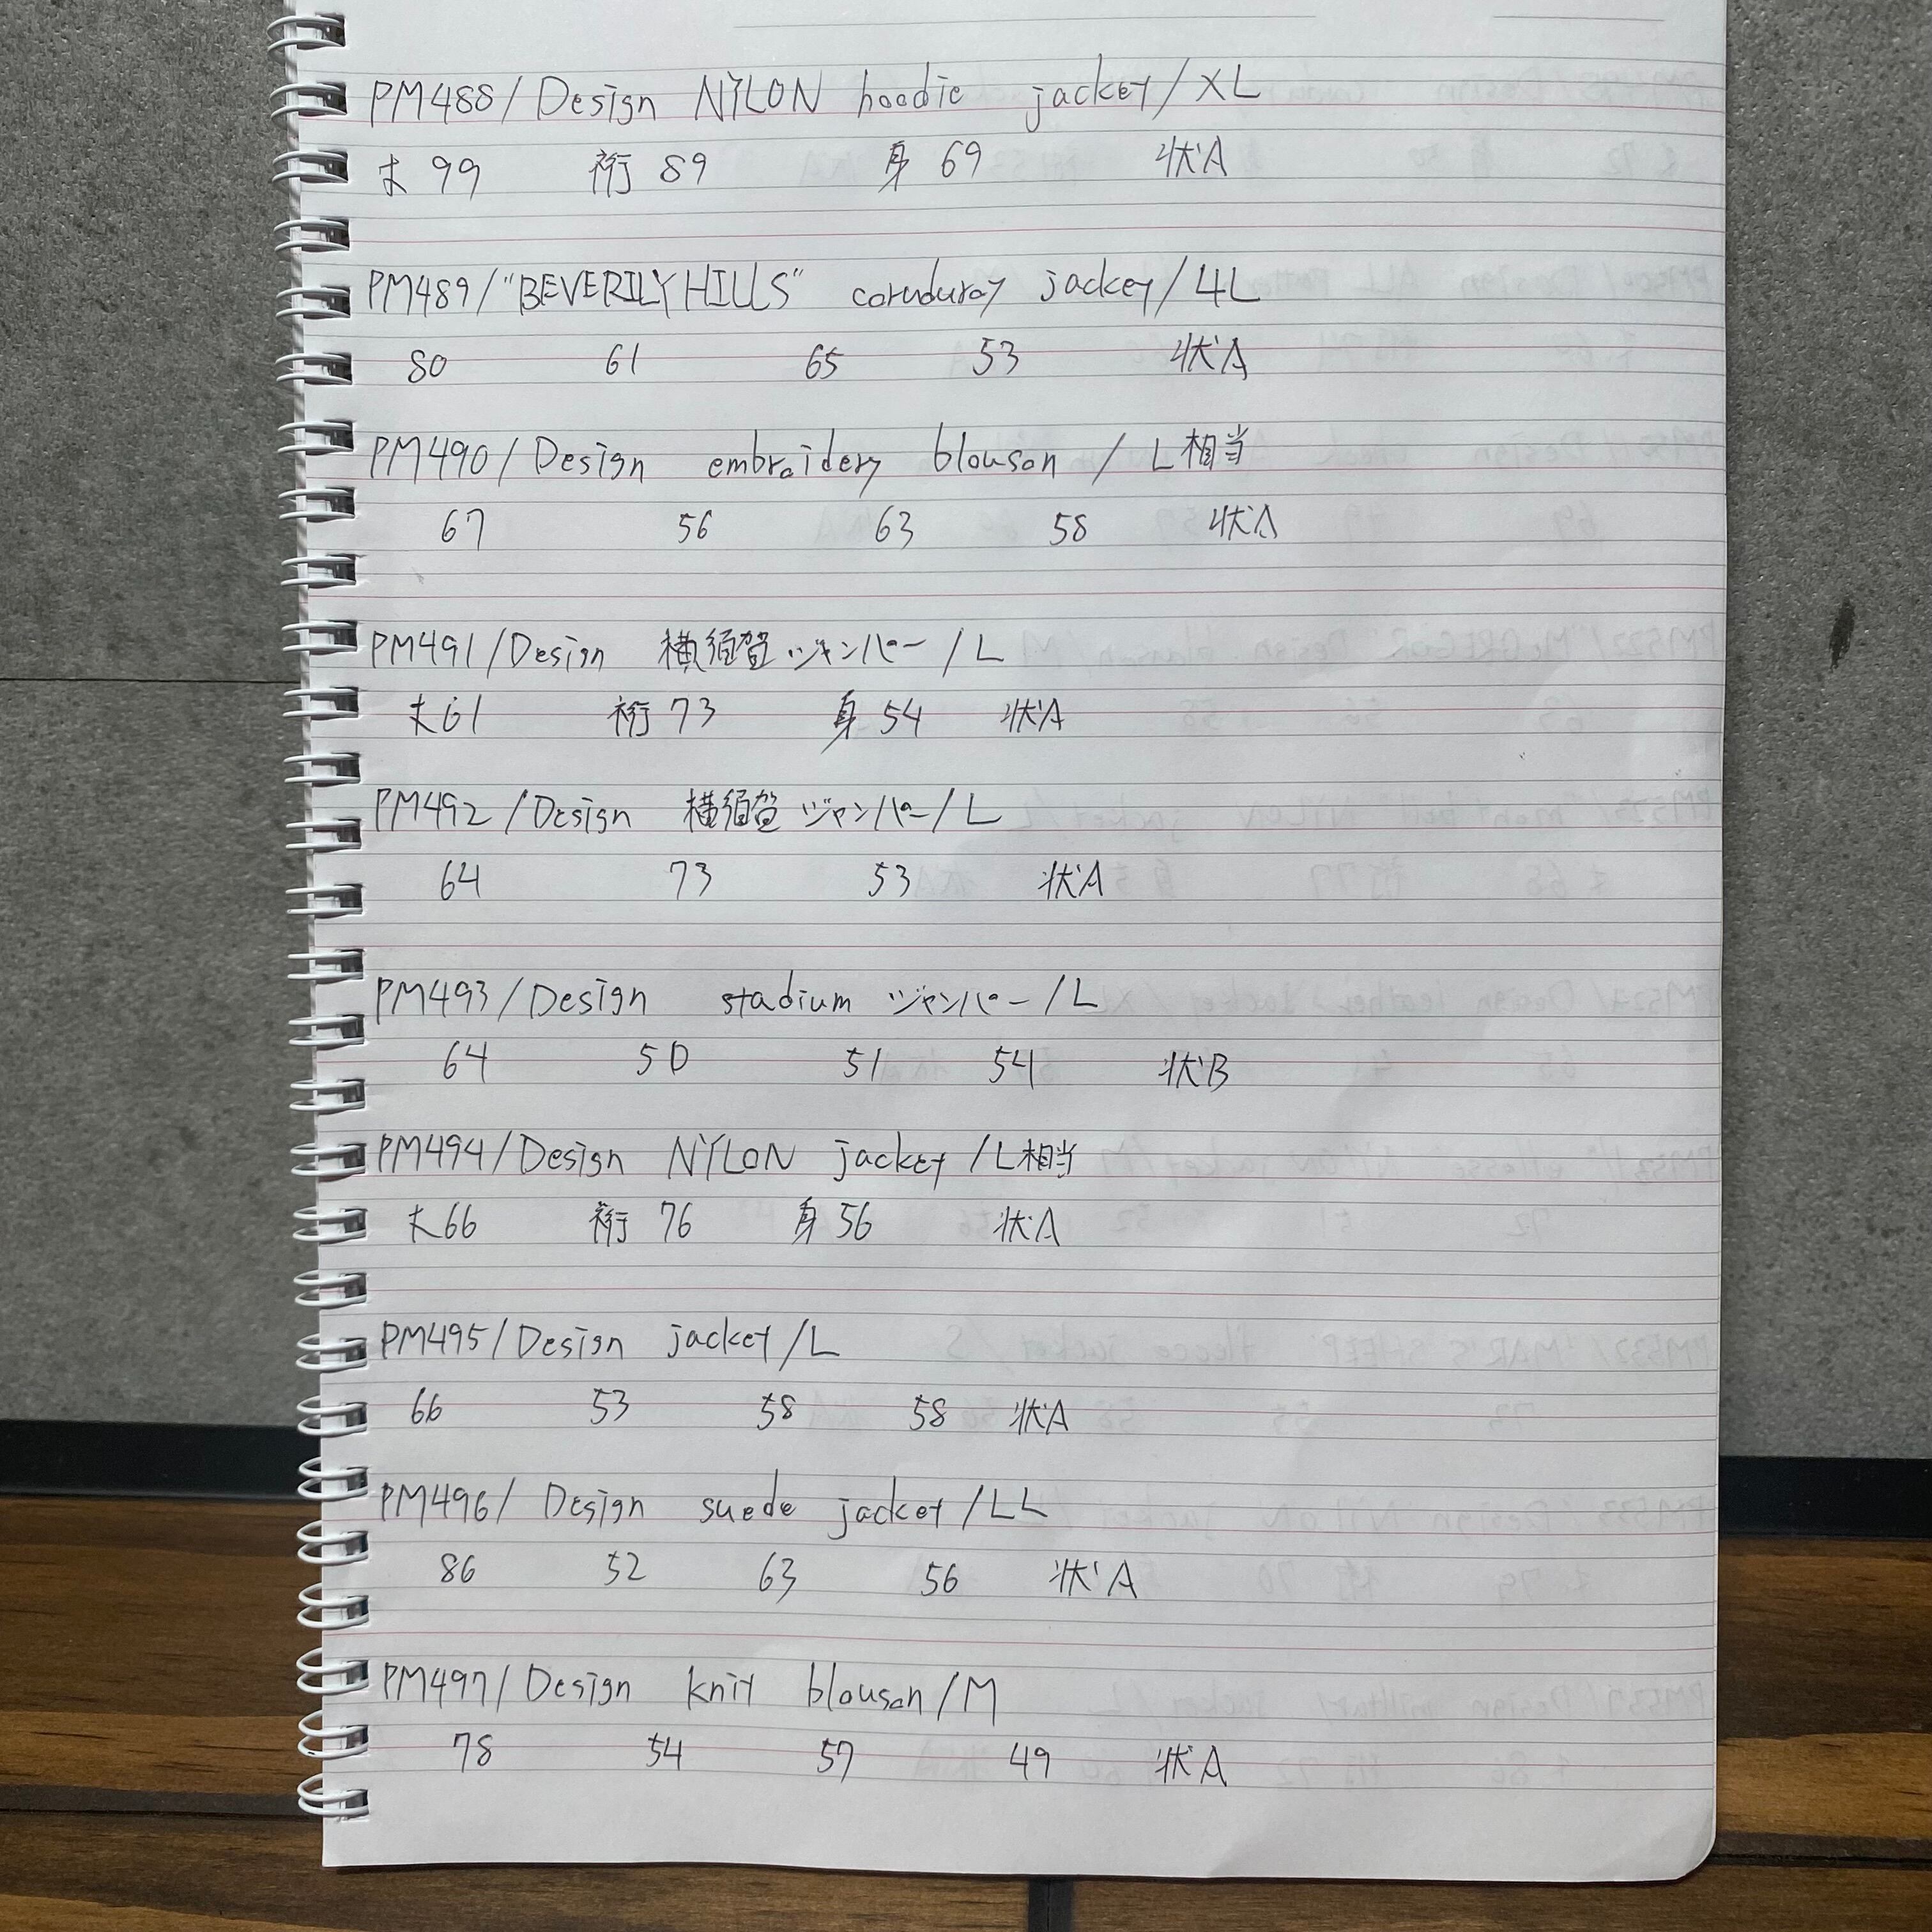 PM488/Design NYLON hoodie jacket/XL
丈99 裄89 身69 状A
PM489/"BEVERILY HILLS" corduroy jacket/4L
80 61 65 53 状A
PM490/Design embroidery blouson/L相当
67 56 63 58 状A
PM491/Design 横須賀ジャンパー/L
丈61 裄73 身54 状A
PM492/Design 横須賀ジャンパー/L
64 73 53 状A
PM493/Design stadium ジャンパー/L
64 50 51 54 状B
PM494/Design NYLON jacket/L相当
丈66 裄76 身56 状A
PM495/Design jacket/L
66 53 58 58 状A
PM496/Design suede jacket/LL
86 52 63 56 状A
PM497/Design knit blouson/M
78 54 57 49 状A